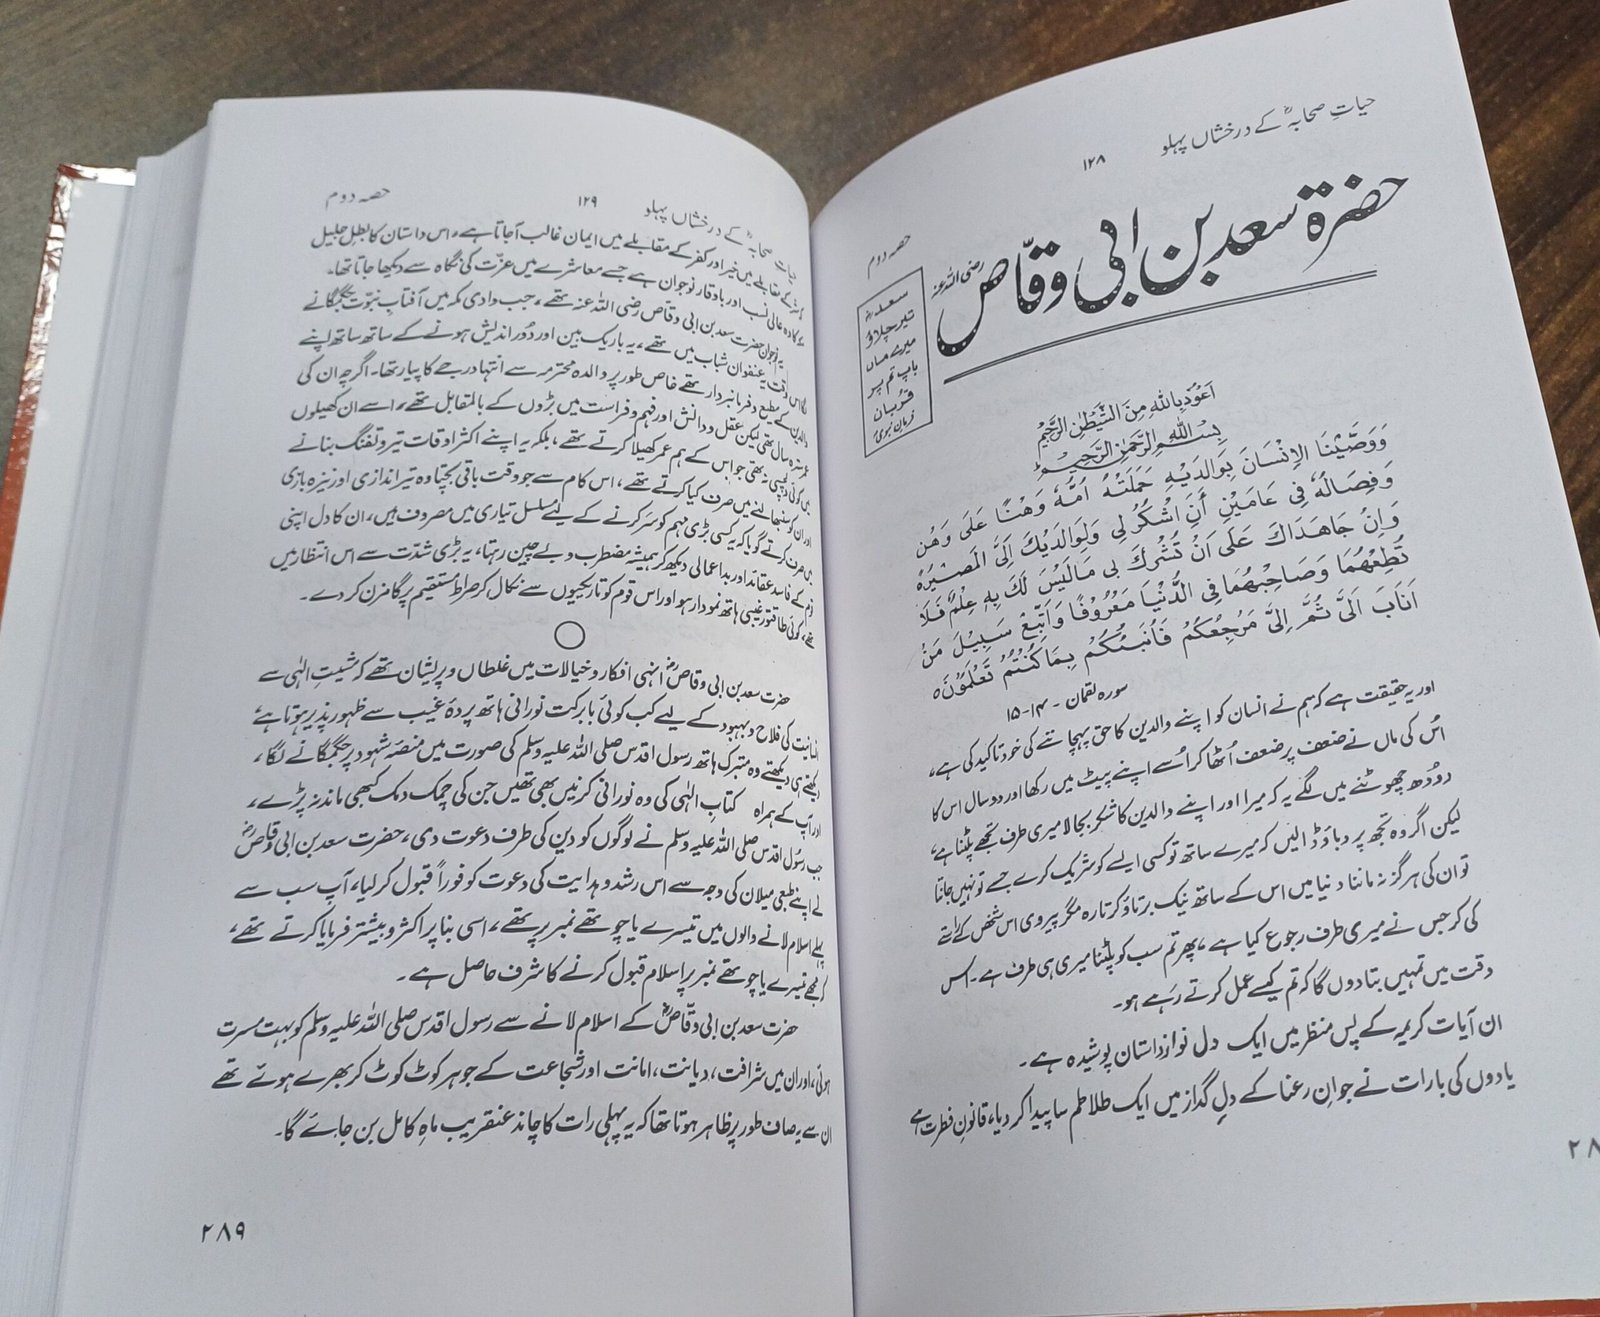 حیاتِ صحابہؓ کے درخشاں پہلو
۱۲۸
حصہ دوم
حضرۃ سعد بن ابی وقّاص رضی اللہ عنہ
سعدؓ
تیر چلاؤ
میرے ماں
باپ تم پر
قربان
فرمان نبویؐ
اَعُوْذُ بِاللّٰهِ مِنَ الشَّيْطٰنِ الرَّجِيْمِ
بِسْمِ اللّٰهِ الرَّحْمٰنِ الرَّحِيْمِ
وَوَصَّيْنَا الْاِنْسَانَ بِوَالِدَيْهِ حَمَلَتْهُ اُمُّهٗ وَهْنًا عَلٰى وَهْنٍ
وَفِصَالُهٗ فِى عَامَيْنِ أَنِ اشْكُرْ لِى وَلِوَالِدَيْكَ اِلَىَّ الْمَصِيْرُ
وَاِنْ جَاهَدَاكَ عَلٰى اَنْ تُشْرِكَ بِى مَالَيْسَ لَكَ بِهٖ عِلْمٌ فَلَا
تُطِعْهُمَا وَصَاحِبْهُمَا فِى الدُّنْيَا مَعْرُوْفًا وَاتَّبِعْ سَبِيْلَ مَنْ
اَنَابَ اِلَىَّ ثُمَّ اِلَىَّ مَرْجِعُكُمْ فَاُنَبِّئُكُمْ بِمَا كُنْتُمْ تَعْمَلُوْنَ ○
سورہ لقمان - ۱۴-۱۵
اور یہ حقیقت ہے کہ ہم نے انسان کو اپنے والدین کا حق پہچاننے کی خود تاکید کی ہے،
اُس کی ماں نے ضعف پر ضعف اُٹھا کر اُسے اپنے پیٹ میں رکھا اور دو سال اس کا
دودھ چھوٹنے میں لگے یہ کہ میرا اور اپنے والدین کا شکر بجا لا میری طرف تجھے پلٹنا ہے،
لیکن اگر وہ تجھ پر دباؤ ڈالیں کہ میرے ساتھ تو کسی ایسے کو شریک کرے جسے تو نہیں جانتا
تو ان کی ہرگز نہ ماننا دنیا میں اس کے ساتھ نیک برتاؤ کرتا رہ مگر پیروی اس شخص کے راستے
کی کر جس نے میری طرف رجوع کیا ہے، پھر تم سب کو پلٹنا میری ہی طرف ہے۔ اس
وقت میں تمہیں بتا دوں گا کہ تم کیسے عمل کرتے رہے ہو۔
ان آیات کریمہ کے پس منظر میں ایک دل نواز داستان پوشیدہ ہے۔
یادوں کی بارات نے جوانِ رعنا کے دلِ گداز میں ایک طلاطم سا پیدا کر دیا، قانونِ فطرت ہے
۲۸
صحابہؓ کے درخشاں پہلو
۱۲۹
حصہ دوم
کے مقابلے میں خیر اور کفر کے مقابلے میں ایمان غالب آجاتا ہے، اس داستان کا بطلِ جلیل
وہ عالی نسب اور باوقار نوجوان ہے جسے معاشرے میں عزّت کی نگاہ سے دیکھا جاتا تھا۔
یہ نوجوان حضرت سعد بن ابی وقاص رضی اللہ عنہ تھے، جب وادی مکہ میں آفتابِ نبوّت جگمگانے
لگا اس وقت یہ عنفوانِ شباب میں تھے، یہ باریک بین اور دُور اندیش ہونے کے ساتھ ساتھ اپنے
والدین کے مطیع و فرمانبردار تھے خاص طور پر والدہ محترمہ سے انتہا درجے کا پیار تھا۔ اگرچہ ان کی
عمر سترہ سال تھی لیکن عقل و دانش اور فہم و فراست میں بڑوں کے بالمقابل تھے، اسے ان کھیلوں
میں کوئی دلچسپی نہ تھی جو اس کے ہم عمر کھیلا کرتے تھے، بلکہ یہ اپنے اکثر اوقات تیر و تفنگ بنانے
اور ان کو سنبھالنے میں صرف کیا کرتے تھے، اس کام سے جو وقت باقی بچتا وہ تیر اندازی اور نیزہ بازی
میں صرف کرتے گویا کہ یہ کسی بڑی مہم کو سَر کرنے کے لیئے مُسلسل تیاری میں مصروف ہیں، ان کا دل اپنی
قوم کے فاسد عقائد اور بداعمالی دیکھ کر ہمیشہ مضطرب و بے چین رہتا، یہ بڑی شدّت سے اس انتظار میں
تھے، کوئی طاقتور غیبی ہاتھ نمودار ہو اور اس قوم کو تاریکیوں سے نکال کر صراطِ مُستقیم پر گامزن کر دے۔
حضرت سعد بن ابی وقاصؓ انہی افکار و خیالات میں غلطاں و پریشان تھے کہ مشیتِ الٰہی سے
انسانیت کی فلاح و بہبود کے لیے کب کوئی بابرکت نورانی ہاتھ پردۂ غیب سے ظہور پذیر ہوتا ہے،
دیکھتے ہی دیکھتے وہ متبرک ہاتھ رسول اقدس صلی اللہ علیہ وسلم کی صورت میں منصَہ شہود پر جگمگانے لگا،
اور آپ کے ہمراہ کتابِ الٰہی کی وہ نورانی کرنیں بھی تھیں جن کی چمک دمک کبھی ماند نہ پڑے،
جب رسُول اقدس صلی اللہ علیہ وسلم نے لوگوں کو دین کی طرف دعوت دی، حضرت سعد بن ابی وقاصؓ
نے اپنے طبعی میلان کی وجہ سے اس رشد و ہدایت کی دعوت کو فوراً قبول کر لیا، آپ سب سے
پہلے اسلام لانے والوں میں تیسرے یا چوتھے نمبر پر تھے، اسی بنا پر اکثر و بیشتر فرمایا کرتے تھے،
کہ مجھے تیسرے یا چوتھے نمبر پر اسلام قبول کرنے کا شرف حاصل ہے۔
حضرت سعد بن ابی وقاصؓ کے اسلام لانے سے رسول اقدس صلی اللہ علیہ وسلم کو بہت مسرت
ہوئی، اور ان میں شرافت، دیانت، امانت اور شجاعت کے جوہر کوٹ کوٹ کر بھرے ہوئے تھے
ان سے یہ صاف طور پر ظاہر ہوتا تھا کہ یہ پہلی رات کا چاند عنقریب ماہِ کامل بن جائے گا۔
۲۸۹